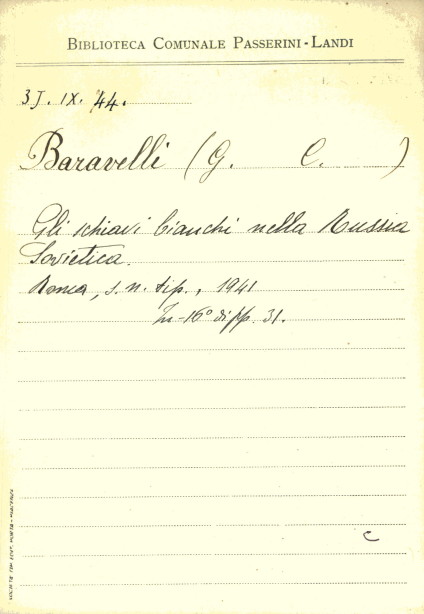 BIBLIOTECA COMUNALE PASSERINI-LANDI
3J. IX. 44.
Baravelli (G. C. )
Gli schiavi bianchi nella Russia
Sovietica.
Roma, s. n. tip., 1941
In-16° di pp. 31.
c